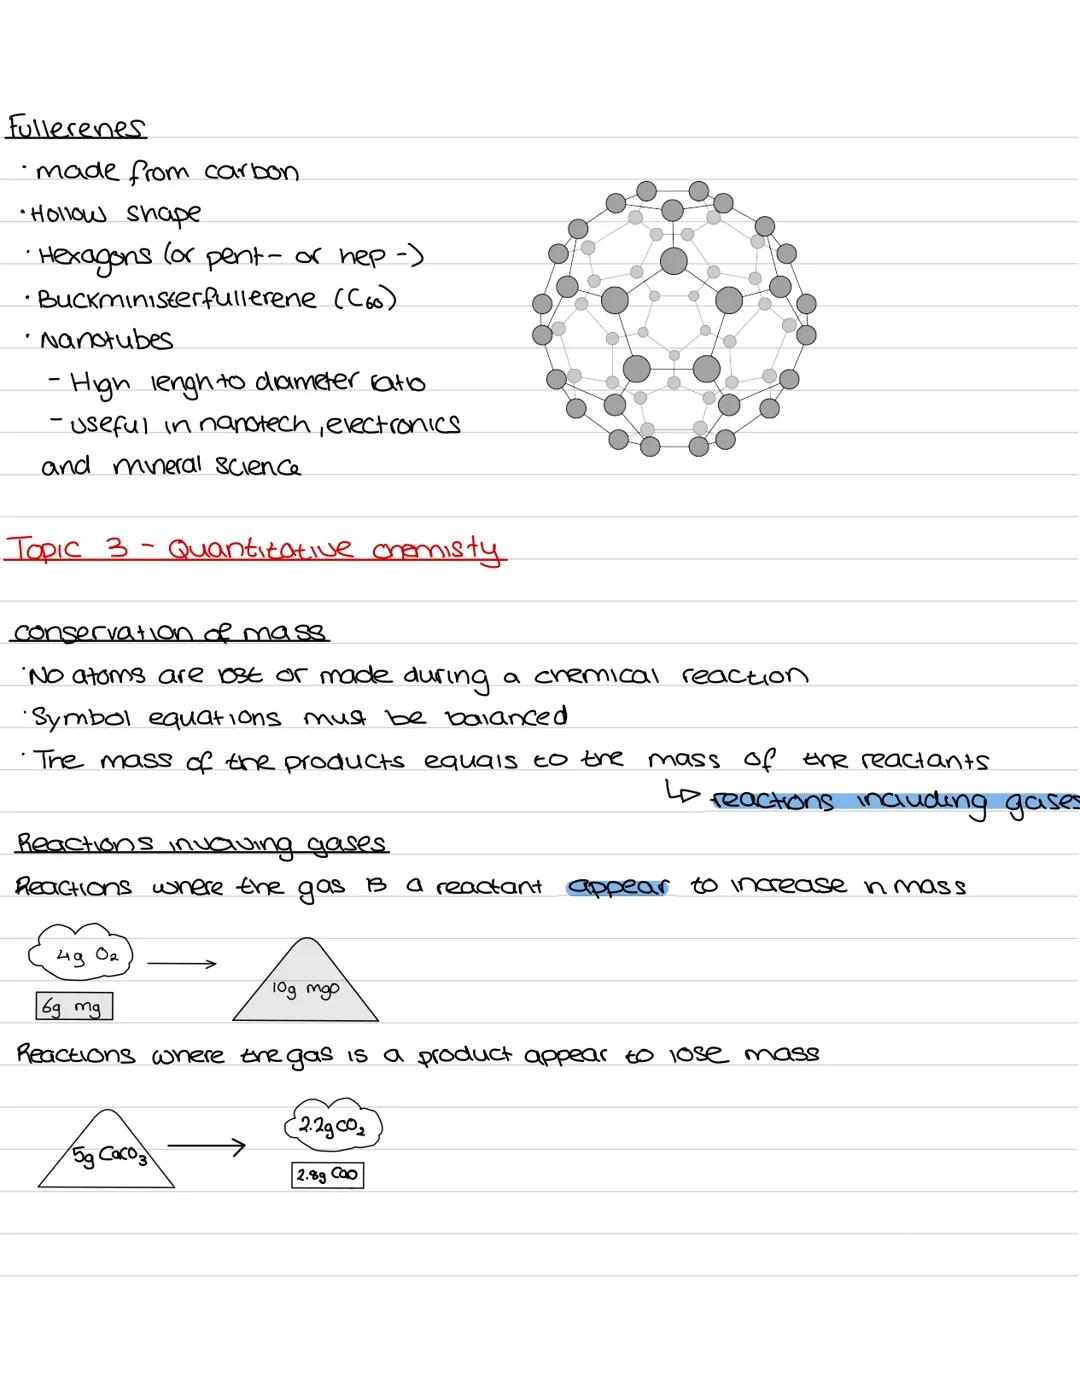 Fullerenes
· made from carbon
· Hollow shape
· Hexagons (or pent- or hep -)
· Buckministerfullerene (C₆₀)
· Nanotubes
- High lengh to diameter ratio
- useful in nanotech, electronics
and mineral science
Topic 3 - Quantitative chemisty
conservation of mass
· No atoms are lost or made during a chemical reaction
· Symbol equations must be balanced
· The mass of the products equals to the mass of the reactants
↳ reactions including gases
Reactions involving gases
Reactions where the gas is a reactant appear to increase in mass
4g O₂
6g mg
10g mgo
Reactions where the gas is a product appear to lose mass
5g CaCO₃
2.2g CO₂
2.8g CaO